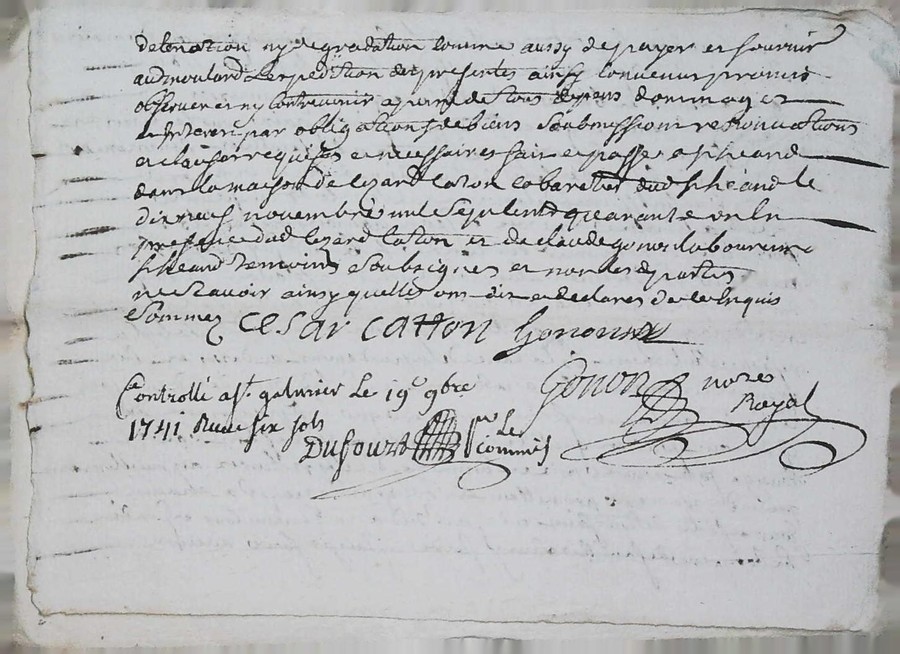 deterioration ny degradation comme aussy de payer et fournir
audit moulard l'expedition des presentes ainsy convenu promis
observer et ny contrevenir a peine de tous depens dommages
et interets par obligations de biens soubmissions renonciations
et clauses requises et necessaires fait et passé a st heand
dans la maison de cezard caton cabaretier dud st héand le
dix neuf novembre mil sept cent quarante un en
presence dud cezard caton et de claude gonon laboureur
st heand temoins soubsignes et non les parties
ne sçavoir ainsy quelles ont dit et declaré de ce enquis
et sommes Cesar catton Gonon
Controllé a st galmier le 19e 9bre
1741 Reçu six sols
Dufour pr le commis
Gonon nore Royal